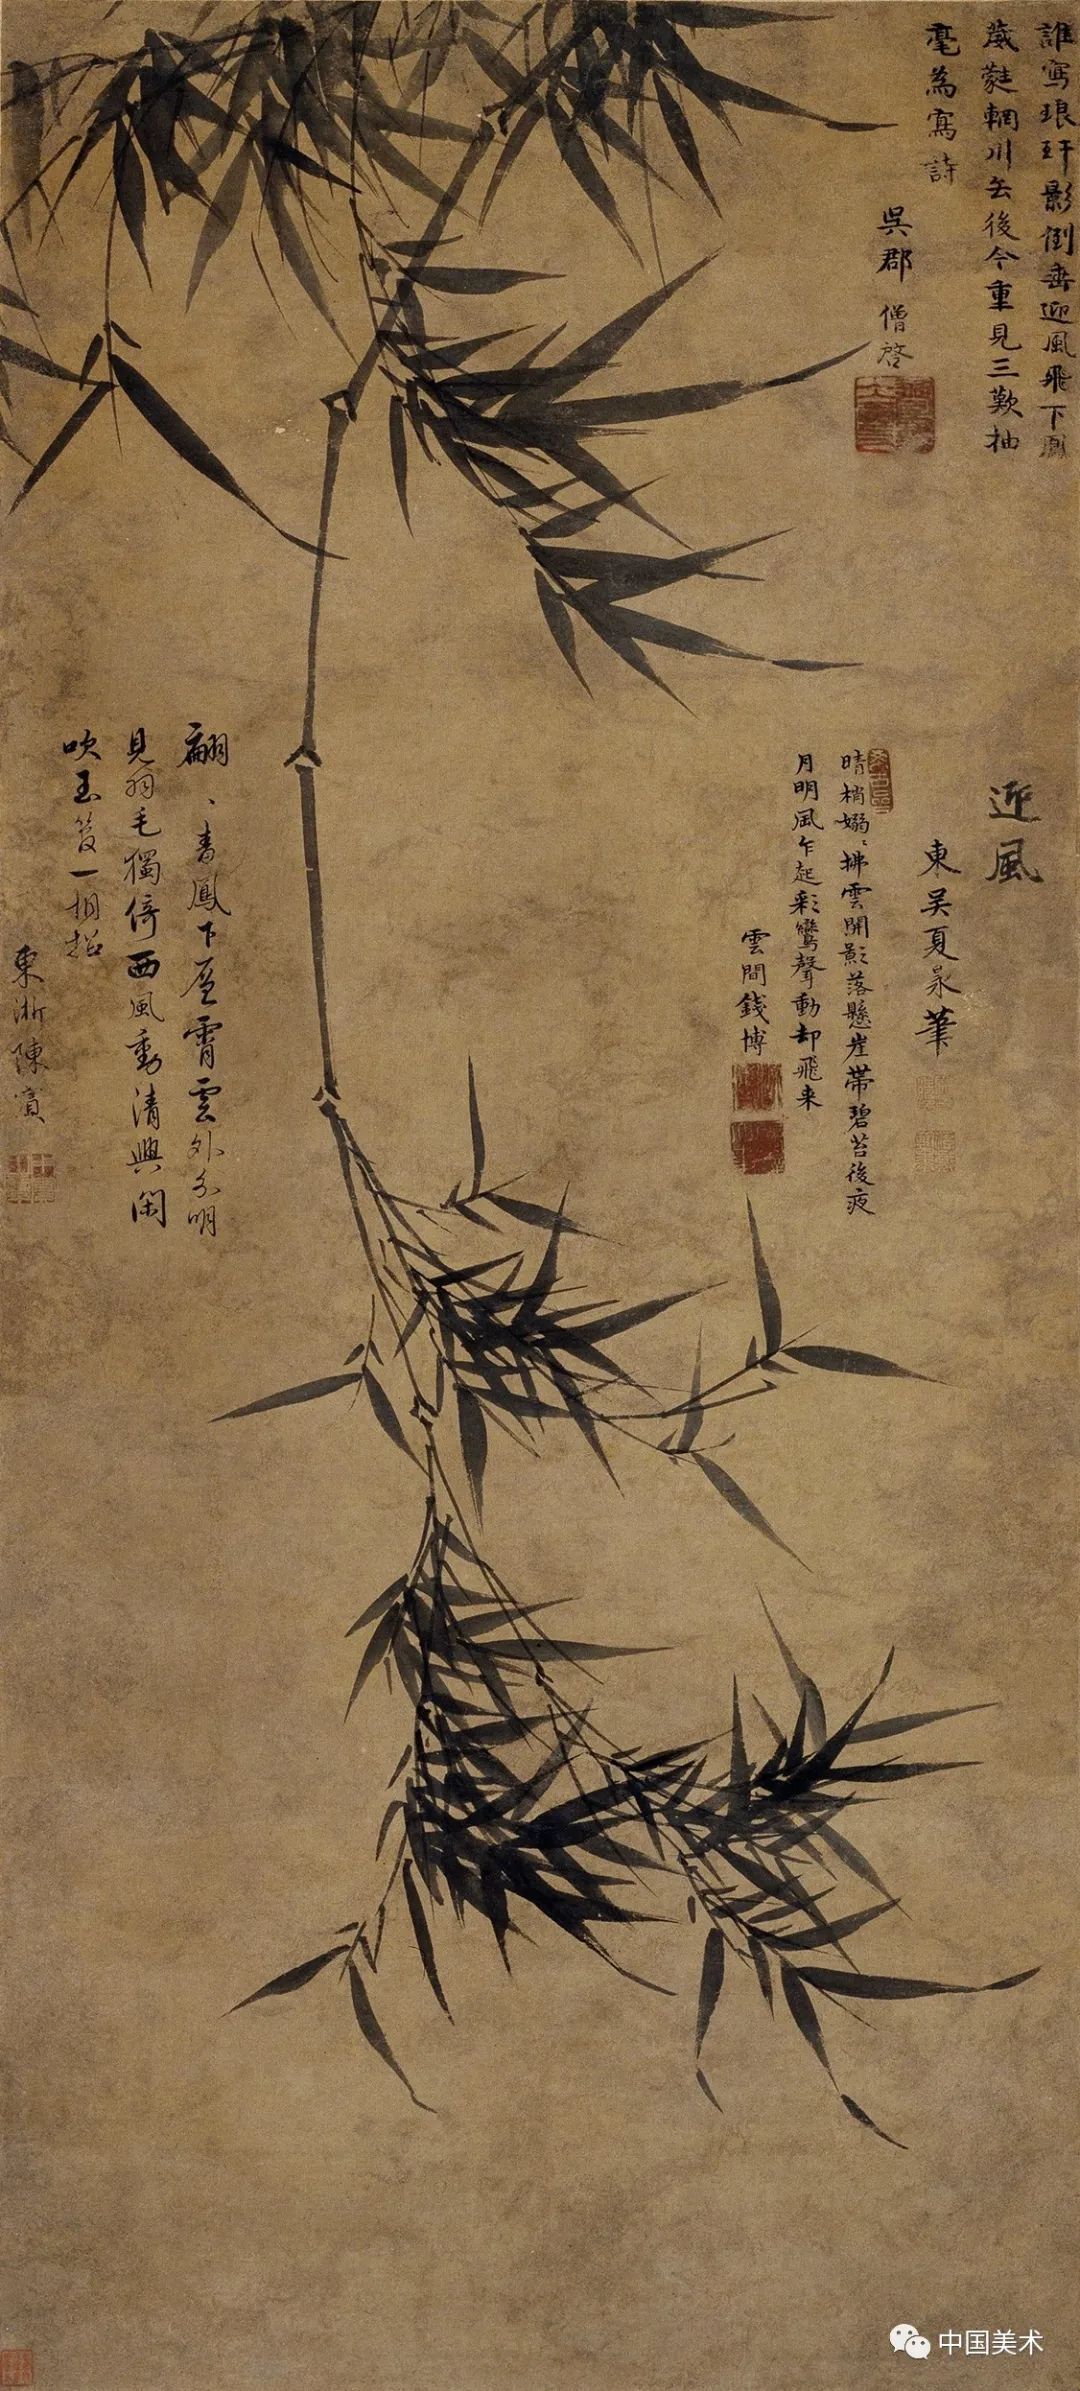 誰寫琅玕影倒垂迎風飛下鳳
葳蕤輞川去後今重見三歎抽
毫為寫詩
吳郡 僧啓
迎風
東吴夏㫤筆
晴梢嫋〻拂雲開影落懸崖帶碧苔後夜
月明風乍起彩鸞聲動却飛来
雲間錢博
翩〻青鳳下層霄雲外分明
見羽毛獨倚西風動清興閑
吹玉笙一相招
東浙陳
中国美术